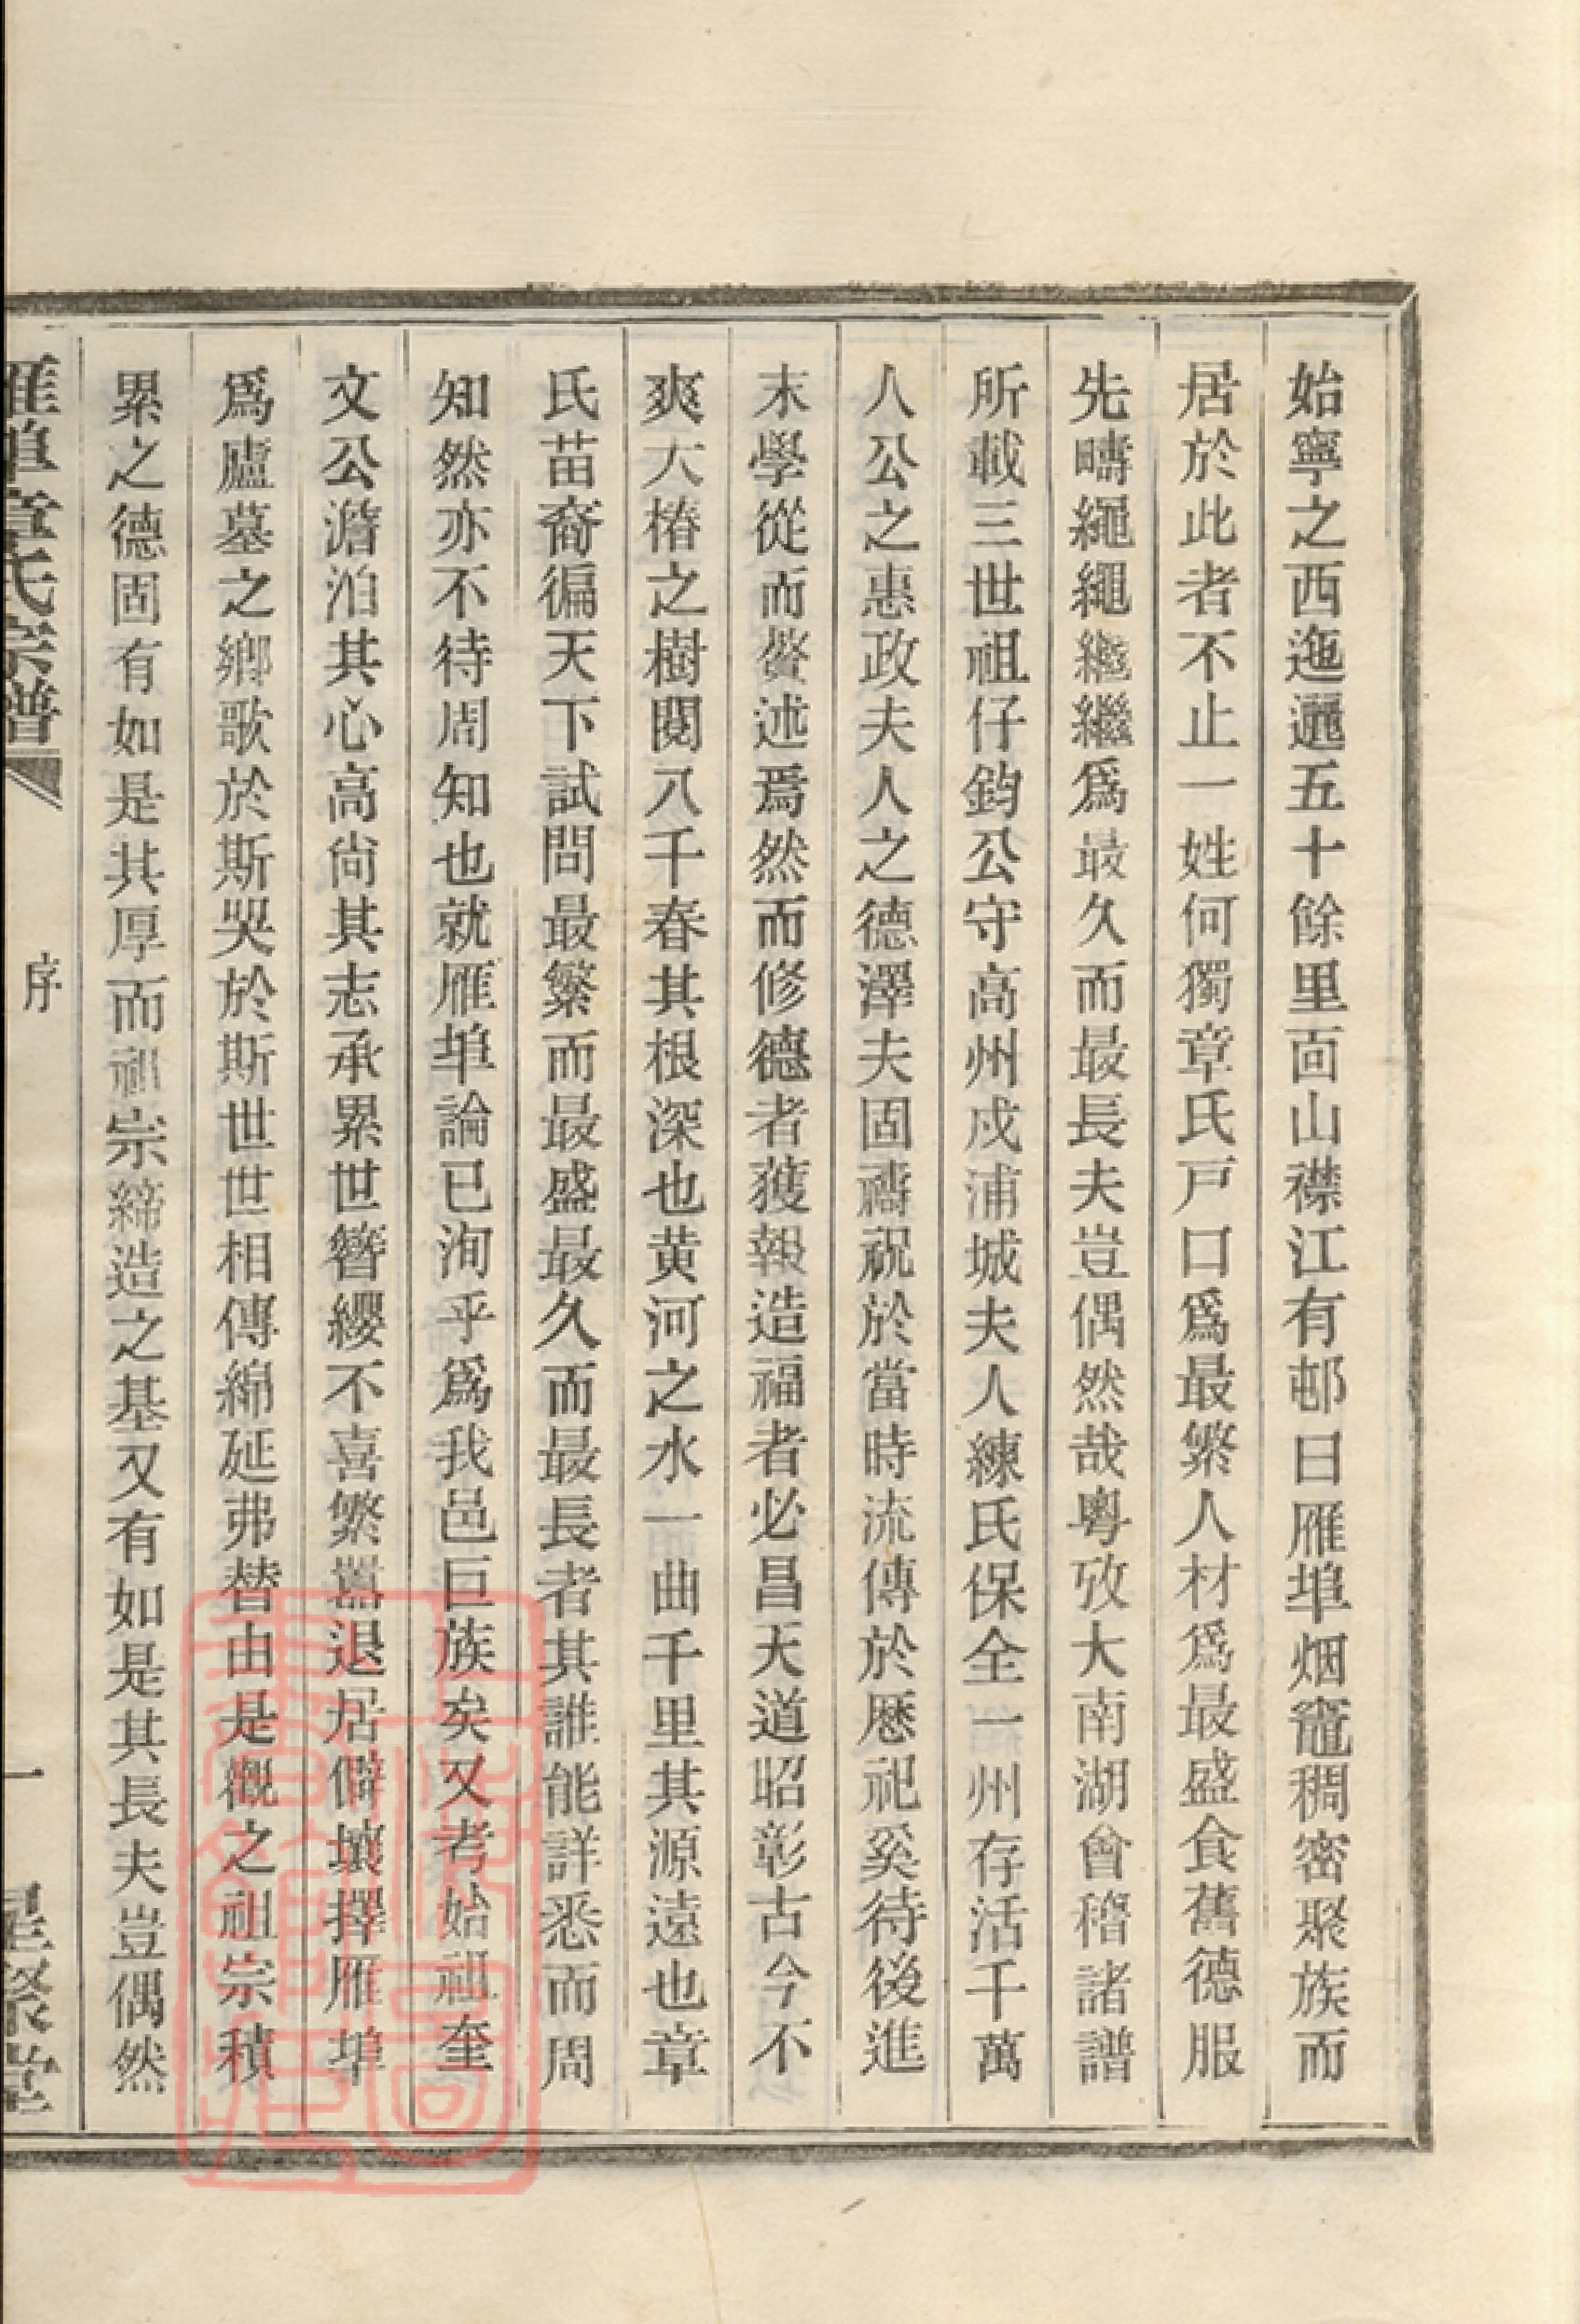 始寧之西迤邐五十餘里面山襟江有邨曰雁埠烟竈稠密聚族而
居於此者不止一姓何獨章氏戸口爲最繁人材爲最盛食舊德服
先疇繩繩繼繼爲最久而最長夫豈偶然哉粤攷大南湖會稽諸譜
所載三世祖仔鈞公守高州戍浦城夫人練氏保全一州存活千萬
人公之惠政夫人之德澤夫固禱祝於當時流傳於厯祀奚待後進
末學從而贅述焉然而修德者獲報造福者必昌天道昭彰古今不
爽大椿之樹閱八千春其根深也黄河之水一曲千里其源遠也章
氏苗裔徧天下試問最繁而最盛最久而最長者其誰能詳悉而周
知然亦不待周知也就雁埠論已洵乎爲我邑巨族矣又考始祖奎
文公澹泊其心高尙其志承累世簪纓不喜繁囂退居僻壤擇雁埠
爲廬墓之鄉歌於斯哭於斯世世相傳綿延弗替由是觀之祖宗積
累之德固有如是其厚而祖宗締造之基又有如是其長夫豈偶然
雁埠章氏宗譜
序
一
星聚堂
上海圖書館藏